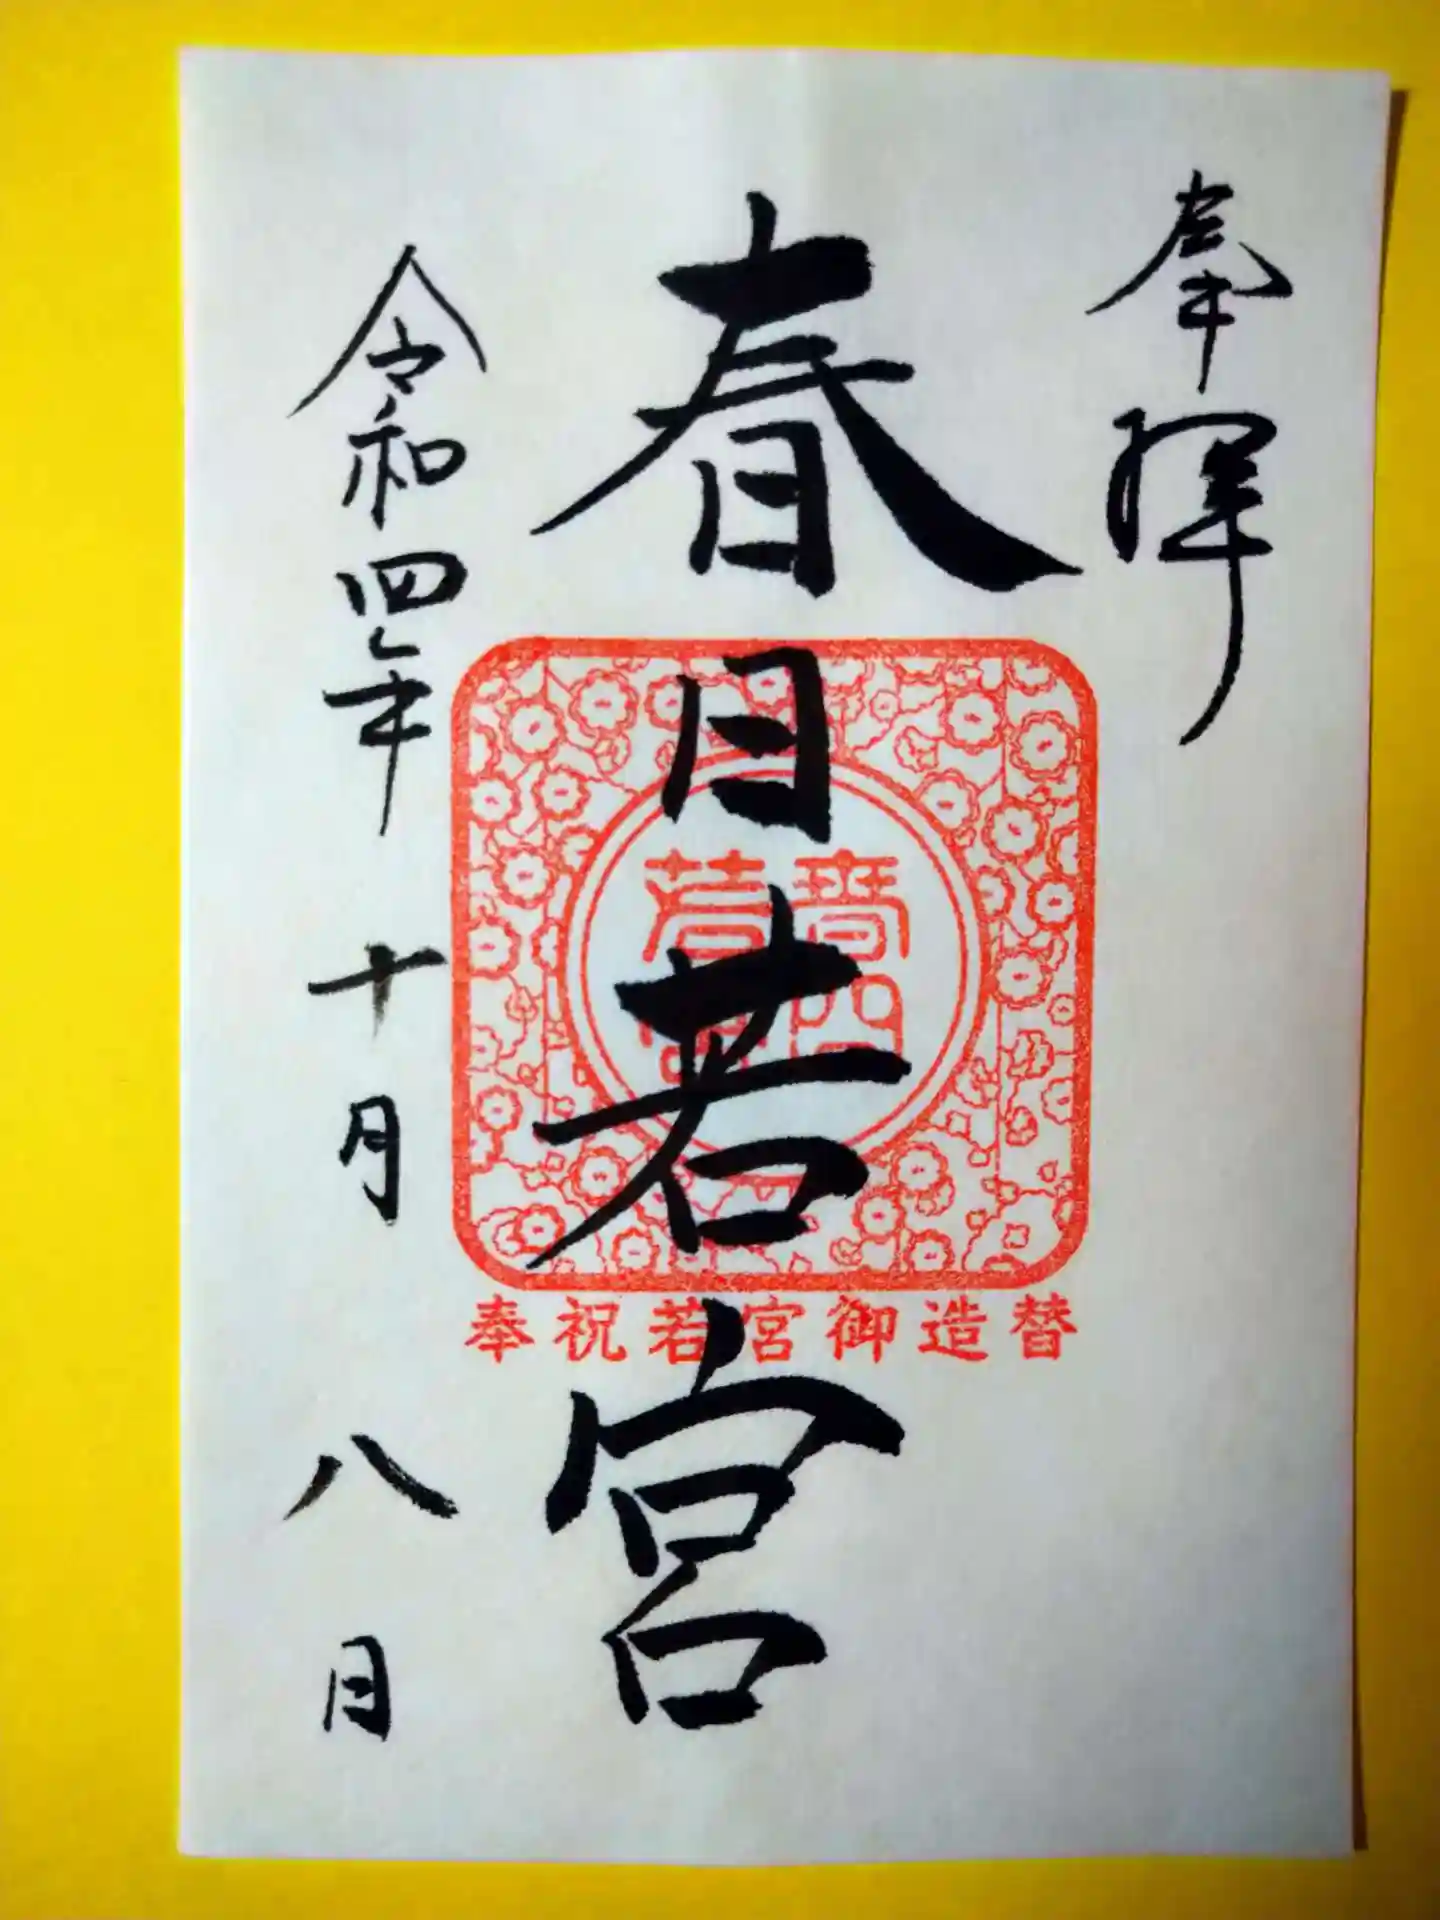 奉拝
春日若宮
春日
若宮
奉祝若宮御造替
令和四年十月八日